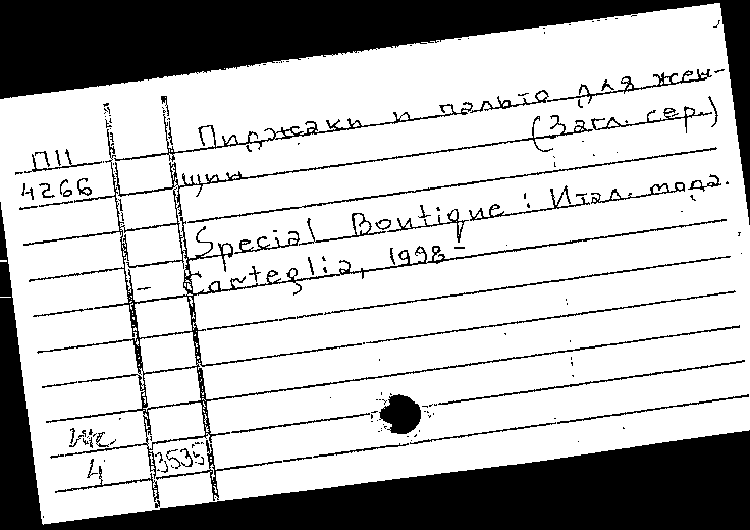 Пиджаки и пальто для жен-
ПII
щин (Загл. сер.)
4266
Special Boutique : Итал. мода.
- Carteglia, 1998 -
4 3535